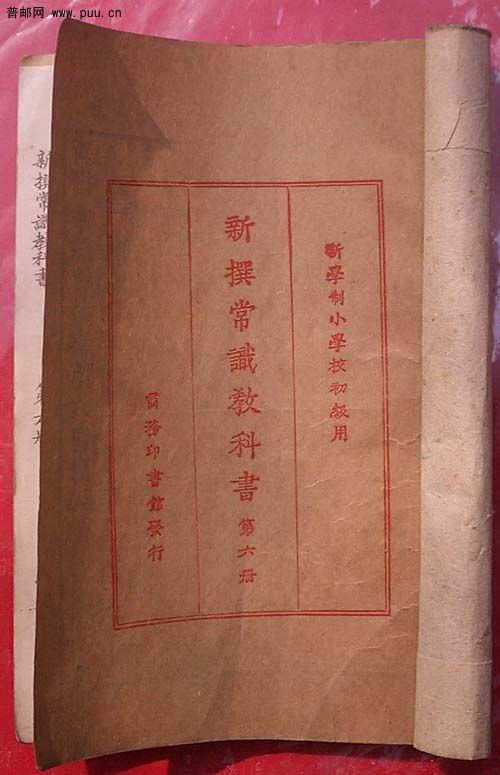 普邮网 www.puu.cn
新學制小學校初級用
新撰常識教科書 第六册
商務印書館發行
新撰常識教科書 第六册